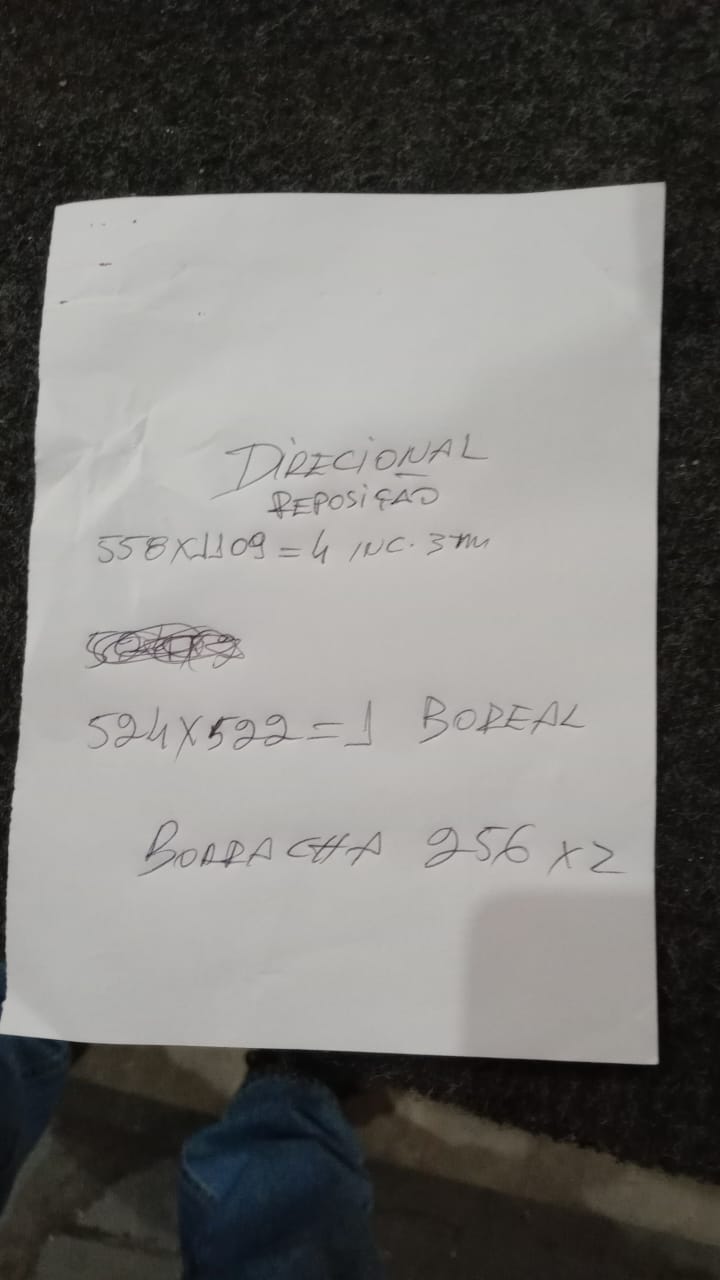 DIRECIONAL
REPOSIÇÃO
558X1109=4 INC. 3mm
524X522=1 BOREAL
BORRACHA 256 X2